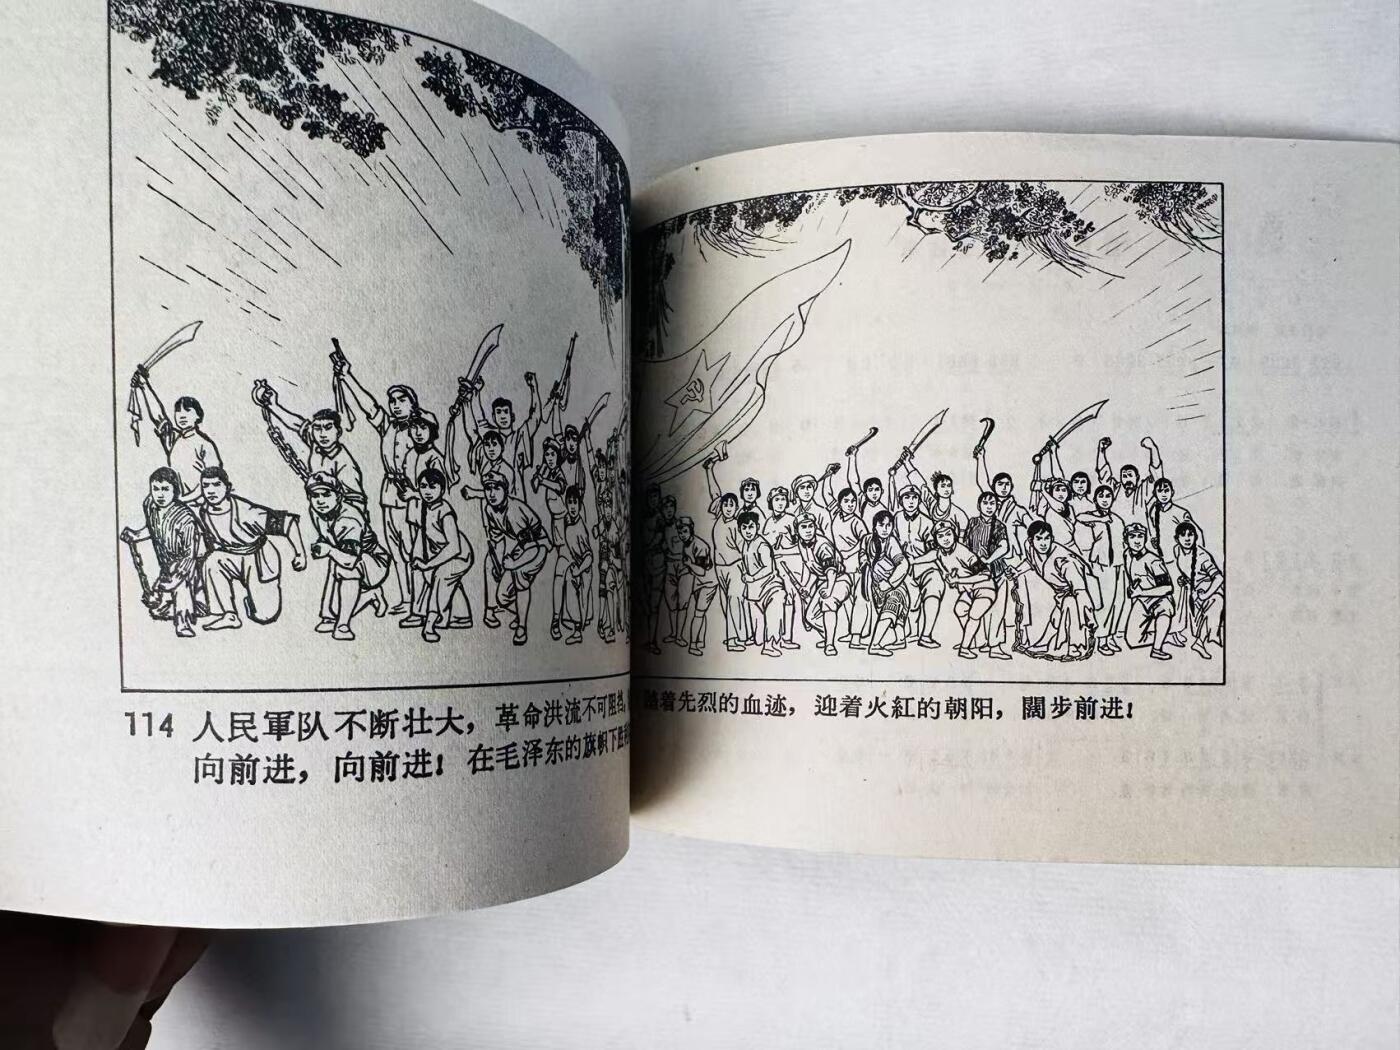 114 人民軍队不断壮大，革命洪流不可阻挡。
向前进，向前进！在毛泽东的旗帜下胜利
踏着先烈的血迹，迎着火紅的朝阳，闊步前进！